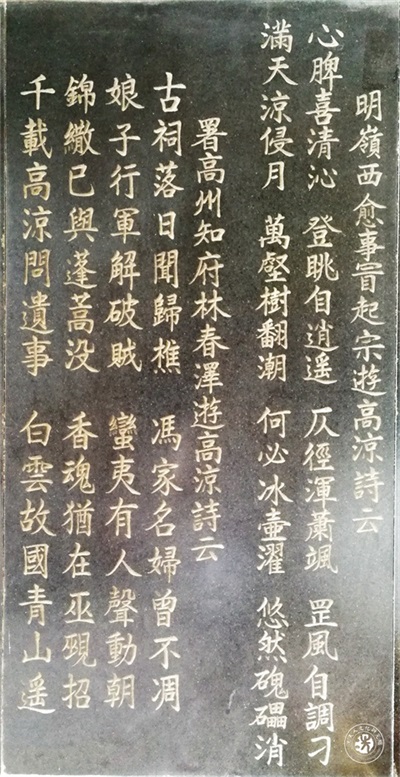 明嶺西愈事冒起宗遊高涼詩云
心脾喜清沁 登眺自逍遥 仄徑渾蕭颯 罡風自調刁
滿天涼侵月 萬壑樹翻潮 何必冰壺濯 悠然磈礧消
署高州知府林春澤遊高涼詩云
古祠落日聞歸樵 馮家名婦曾不凋
娘子行軍解破賊 蠻夷有人聲動朝
錦繖已與蓬蒿没 香魂猶在巫覡招
千載高涼問遺事 白雲故國青山遥